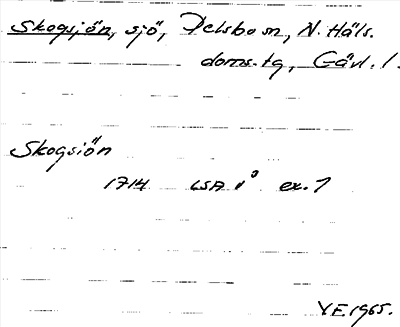 Skogsjön, sjö, Delsbo sn, N. Häls.
doms.tg, Gävl. l.
Skogsiön
1714 LSA 1° ex. 1
Y.E. 1965.